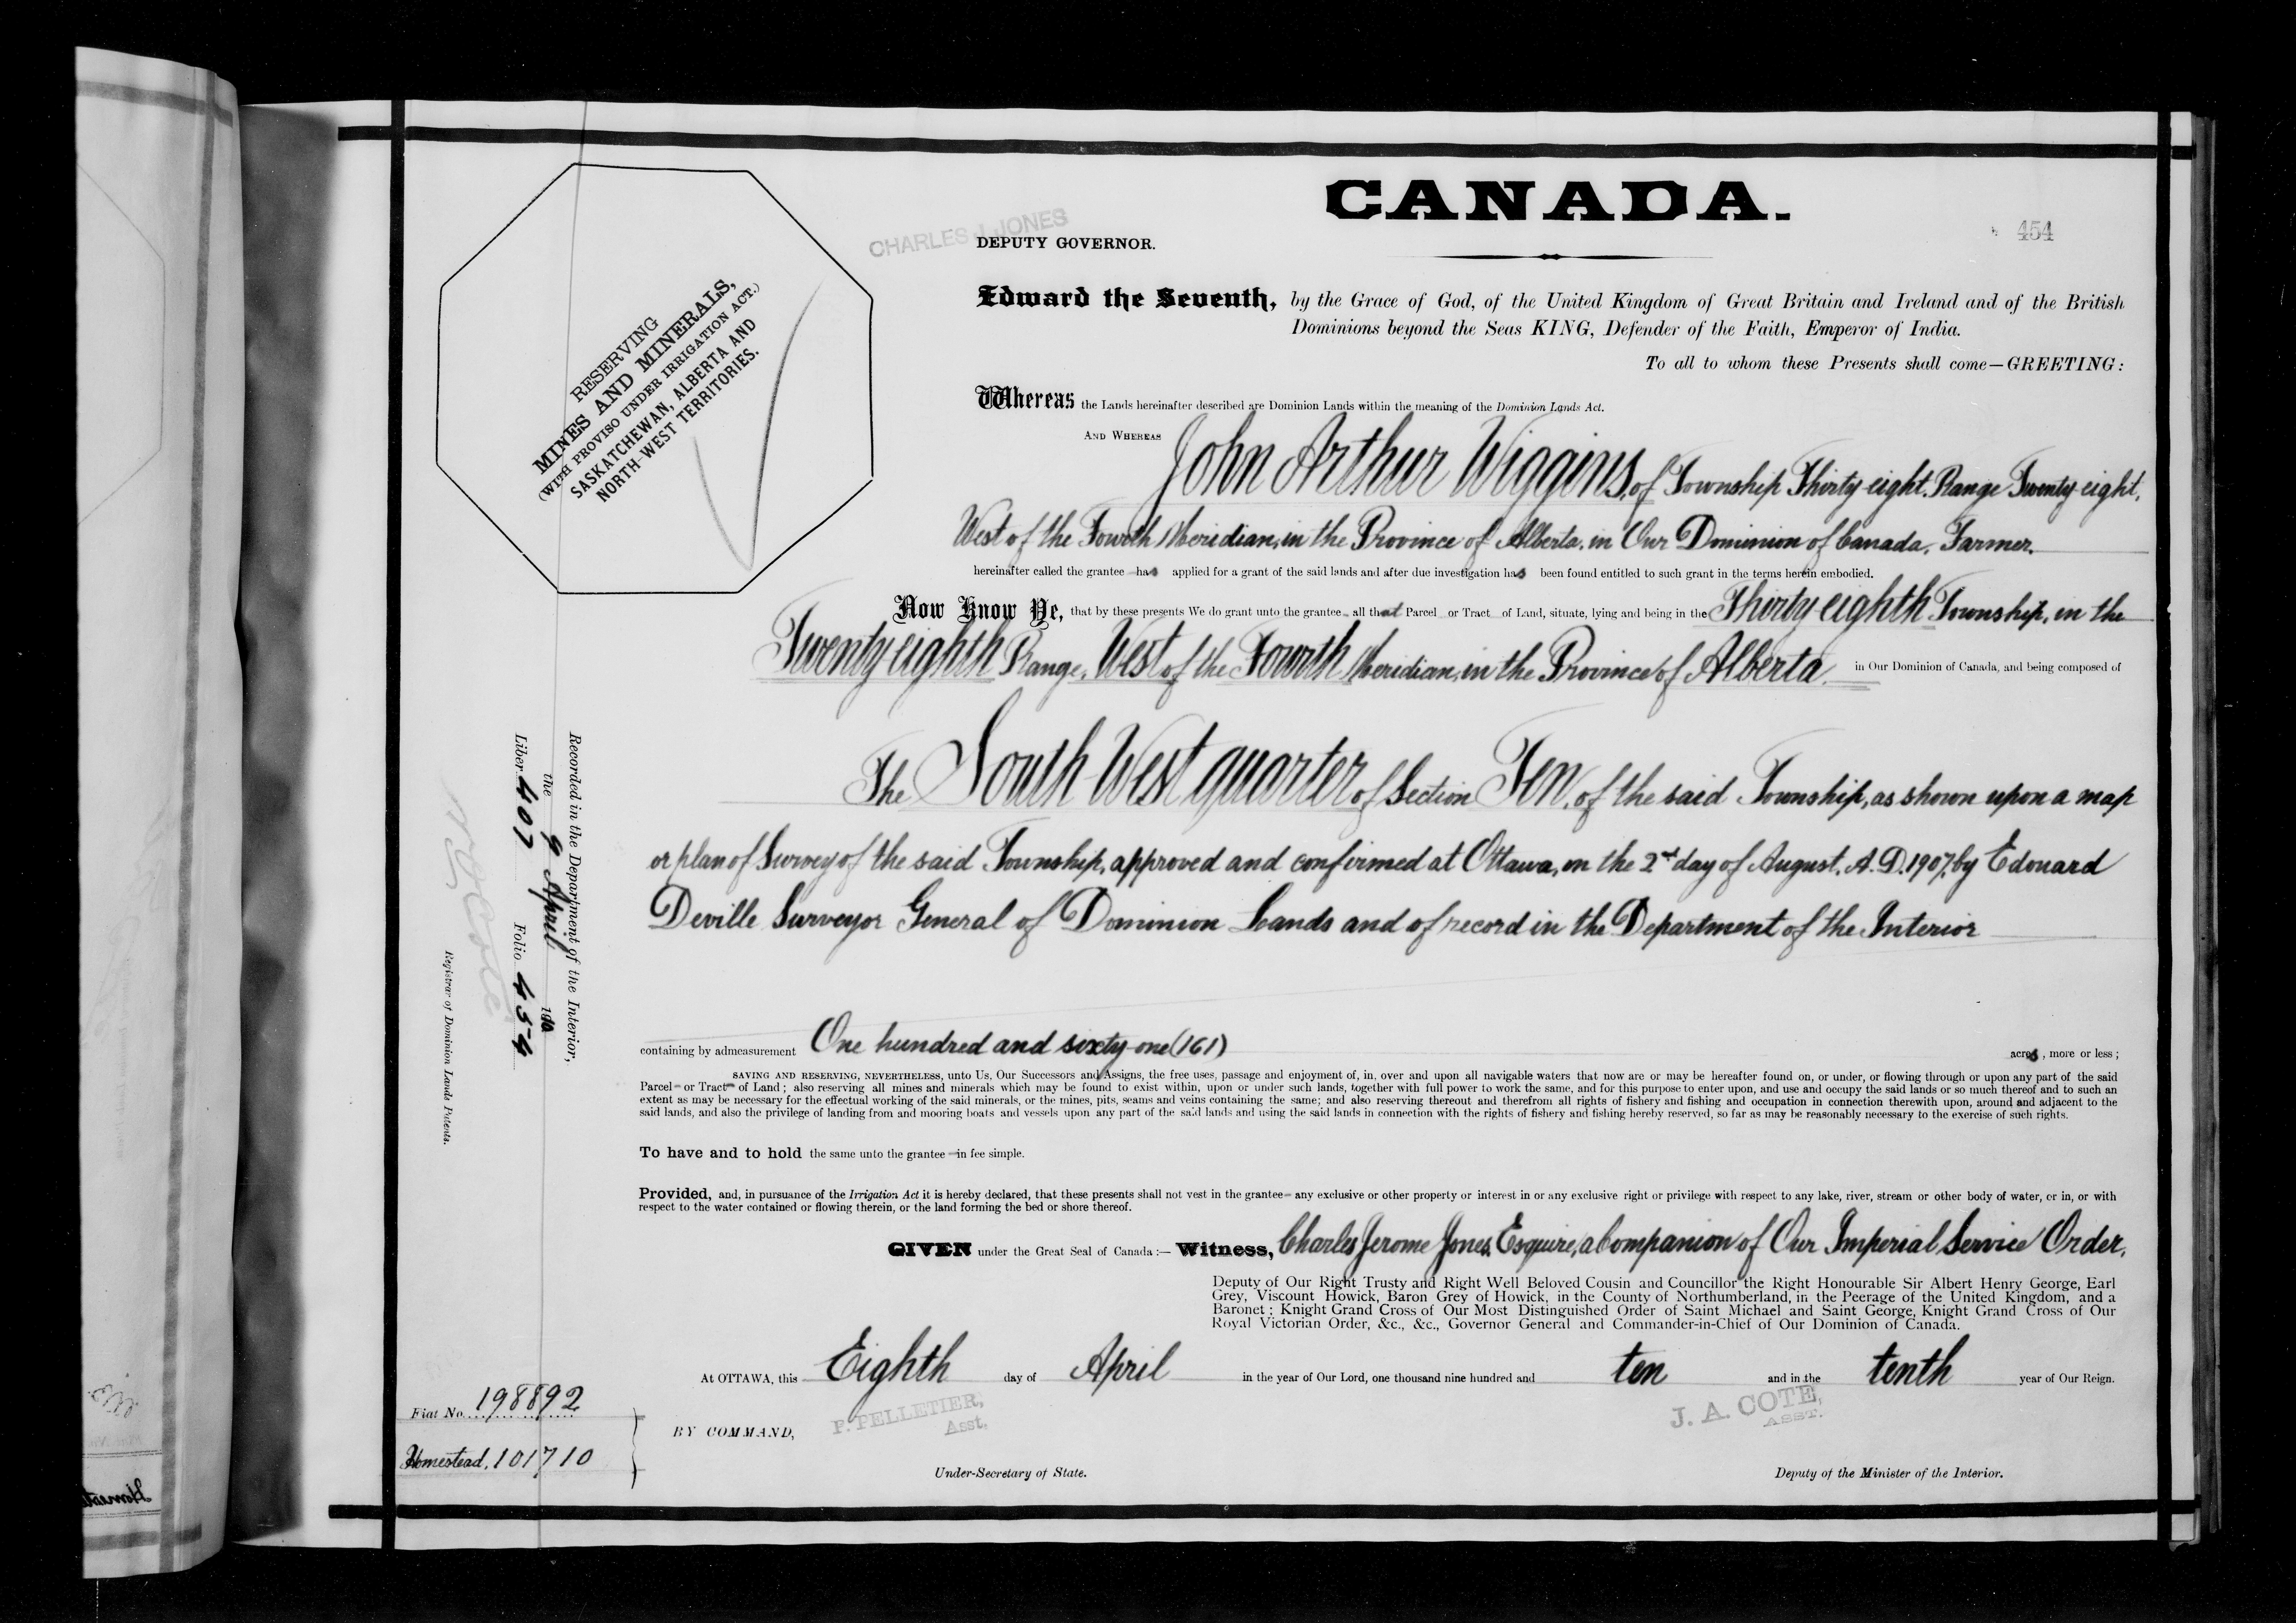 CANADA.
454
CHARLES J. JONES
DEPUTY GOVERNOR.
RESERVING
MINES AND MINERALS,
(WITH PROVISO UNDER IRRIGATION ACT.)
SASKATCHEWAN, ALBERTA AND
NORTH-WEST TERRITORIES.
Edward the Seventh, by the Grace of God, of the United Kingdom of Great Britain and Ireland and of the British
Dominions beyond the Seas KING, Defender of the Faith, Emperor of India.
To all to whom these Presents shall come—GREETING:
Whereas the Lands hereinafter described are Dominion Lands within the meaning of the Dominion Lands Act.
AND WHEREAS John Arthur Wiggins, of Township Thirty eight, Range Twenty-eight,
West of the Fourth Meridian, in the Province of Alberta, in Our Dominion of Canada, Farmer.
hereinafter called the grantee has applied for a grant of the said lands and after due investigation has been found entitled to such grant in the terms herein embodied.
Now Know Ye, that by these presents We do grant unto the grantee all that Parcel or Tract of Land, situate, lying and being in the Thirty eighth Township, in the
Twenty eighth Range, West of the Fourth Meridian, in the Province of Alberta, in Our Dominion of Canada, and being composed of
The South West quarter of Section Ten, of the said Township, as shown upon a map
or plan of Survey of the said Township, approved and confirmed at Ottawa, on the 2nd day of August, A.D. 1907, by Edouard
Deville Surveyor General of Dominion Lands and of record in the Department of the Interior
containing by admeasurement One hundred and sixty-one (161) acres, more or less;
SAVING AND RESERVING, NEVERTHELESS, unto Us, Our Successors and Assigns, the free uses, passage and enjoyment of, in, over and upon all navigable waters that now are or may be hereafter found on, or under, or flowing through or upon any part of the said
Parcel or Tract of Land; also reserving all mines and minerals which may be found to exist within, upon or under such lands, together with full power to work the same, and for this purpose to enter upon, and use and occupy the said lands or so much thereof and to such an
extent as may be necessary for the effectual working of the said minerals, or the mines, pits, seams and veins containing the same; and also reserving thereout and therefrom all rights of fishery and fishing and occupation in connection therewith upon, around and adjacent to the
said lands, and also the privilege of landing from and mooring boats and vessels upon any part of the said lands and using the said lands in connection with the rights of fishery and fishing hereby reserved, so far as may be reasonably necessary to the exercise of such rights.
To have and to hold the same unto the grantee in fee simple.
Provided, and, in pursuance of the Irrigation Act it is hereby declared, that these presents shall not vest in the grantee any exclusive or other property or interest in or any exclusive right or privilege with respect to any lake, river, stream or other body of water, or in, or with
respect to the water contained or flowing therein, or the land forming the bed or shore thereof.
GIVEN under the Great Seal of Canada:— Witness, Charles Jerome Jones, Esquire, a Companion of Our Imperial Service Order,
Deputy of Our Right Trusty and Right Well Beloved Cousin and Councillor the Right Honourable Sir Albert Henry George, Earl
Grey, Viscount Howick, Baron Grey of Howick, in the County of Northumberland, in the Peerage of the United Kingdom, and a
Baronet; Knight Grand Cross of Our Most Distinguished Order of Saint Michael and Saint George, Knight Grand Cross of Our
Royal Victorian Order, &c., &c., Governor General and Commander-in-Chief of Our Dominion of Canada.
At OTTAWA, this Eighth day of April in the year of Our Lord, one thousand nine hundred and ten and in the tenth year of Our Reign.
P. PELLETIER,
Asst.
J. A. COTE,
ASST.
BY COMMAND,
Under-Secretary of State.
Deputy of the Minister of the Interior.
Recorded in the Department of the Interior,
the 9 April 1910
Liber 407 Folio 454
Registrar of Dominion Lands Patents.
Fiat No. 198892
Homestead, 101710